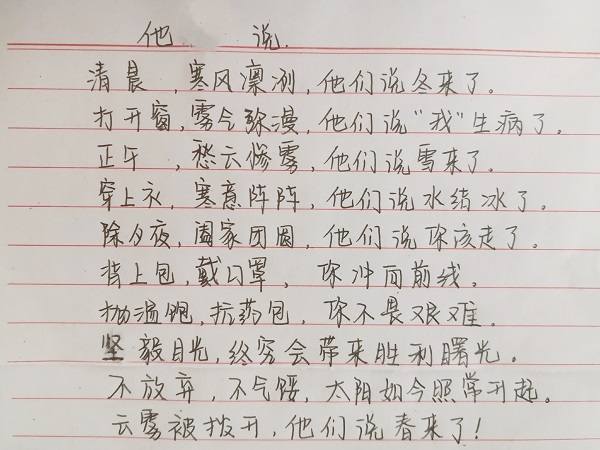 他 说.
清晨,寒风凛冽,他们说冬来了。
打开窗,雾气弥漫,他们说“我”生病了。
正午,愁云惨雾,他们说雪来了。
穿上衣,寒意阵阵,他们说水结冰了。
除夕夜,阖家团圆,他们说你该走了。
背上包,戴口罩,你冲向前线。
抛温饱,抗药包,你不畏艰难。
坚毅目光,终究会带来胜利曙光。
不放弃,不气馁,太阳如今照常升起。
云雾被拨开,他们说春来了!